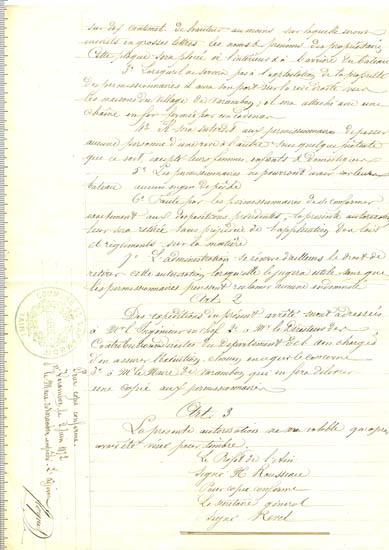 sur dix centimet. de hauteur au moins sur laquelle seront
inscrits en grosses lettres les noms & prénoms des propriétaires
Cette plaque sera placée à l'intérieur & à l'arrière du bateau
3° Lorsqu'il ne servira pas à l'exploitation de la propriété
des permissionnaires il aura son port sur la rive droite vers
les maisons du village de Varambon, il sera attaché avec une
chaîne en fer fermée par un cadenas
4° Il sera interdit aux permissionnaires de passer
aucune personne d'une rive à l'autre sous quelque prétexte
que ce soit excepté leurs femmes, enfants & domestiques
5° Les permissionnaires ne pourront avoir sur leur
bateau aucun engin de pêche
6° Faute par les permissionnaires de se conformer
exactement aux dispositions précédentes, la présente autorisation
leur sera retirée sans préjudice de l'application des lois
et règlements sur la matière
7° L'administration se réserve d'ailleurs le droit de
retirer cette autorisation lorsqu'elle le jugera utile sans que
les permissionnaires puissent réclamer aucune indemnité
Art. 2
Des expéditions du présent arrêté seront adressées
à Mr l'Ingénieur en chef 2° à Mr le Directeur des
Contributions directes du Département de l'Ain chargés
d'en assurer l'exécution chacun en ce qui le concerne
3° à Mr le Maire de Varambon qui en fera délivrer
une copie aux permissionnaires
Art. 3
La présente autorisation ne sera valable qu'après
avoir été visée pour timbre.
Le Préfet de l'Ain
Signé H Rousseau
Pour copie conforme
Le secrétaire général
Signé
Pour copie conforme
Varambon le
Le Maire